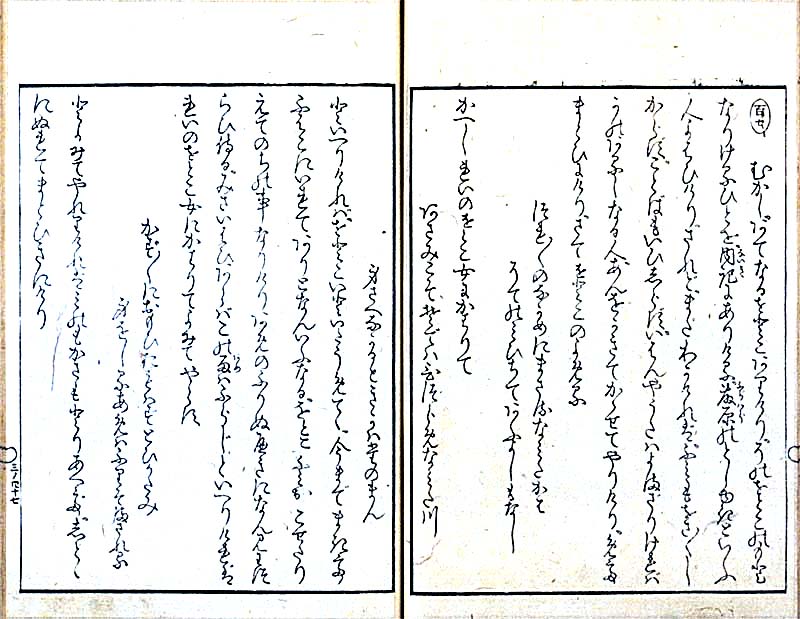 百七
むかしあてなるをとこありけりそのをとこのもと
なりける人を内記にありける藤原のとしゆきといふ
人よばひけりされどまだわかければふみもをさ〳〵し
からずことばもいひしらずいはんやうたはよまざりければ
かのあるじなる人あんをかきてかゝせてやりけりめで
まどひにけりさてをとこのよめる
つれ〴〵のながめにまさるなみだがは
そでのみひちてあふよしもなし
かへしれいのをとこ女にかはりて
あさみこそそではひづらめなみだ川
身さへながるときかばたのまん
といへりければをとこいといたうめでて今までまきて
ふばこにいれてありとなんいふなるをとこふみおこせたり
えてのちの事なりけりあめのふりぬべきになん見わづ
らひ侍るみさいはひあらばこの雨はふらじといへりければ
れいのをとこ女にかはりてよみてやらす
かず〳〵におもひおもはずとひがたみ
身をしるあめはふりぞまされる
とよみてやれりければみのもかさもとりあへでしとゝ
にぬれてまどひきにけり
三ノ四十七